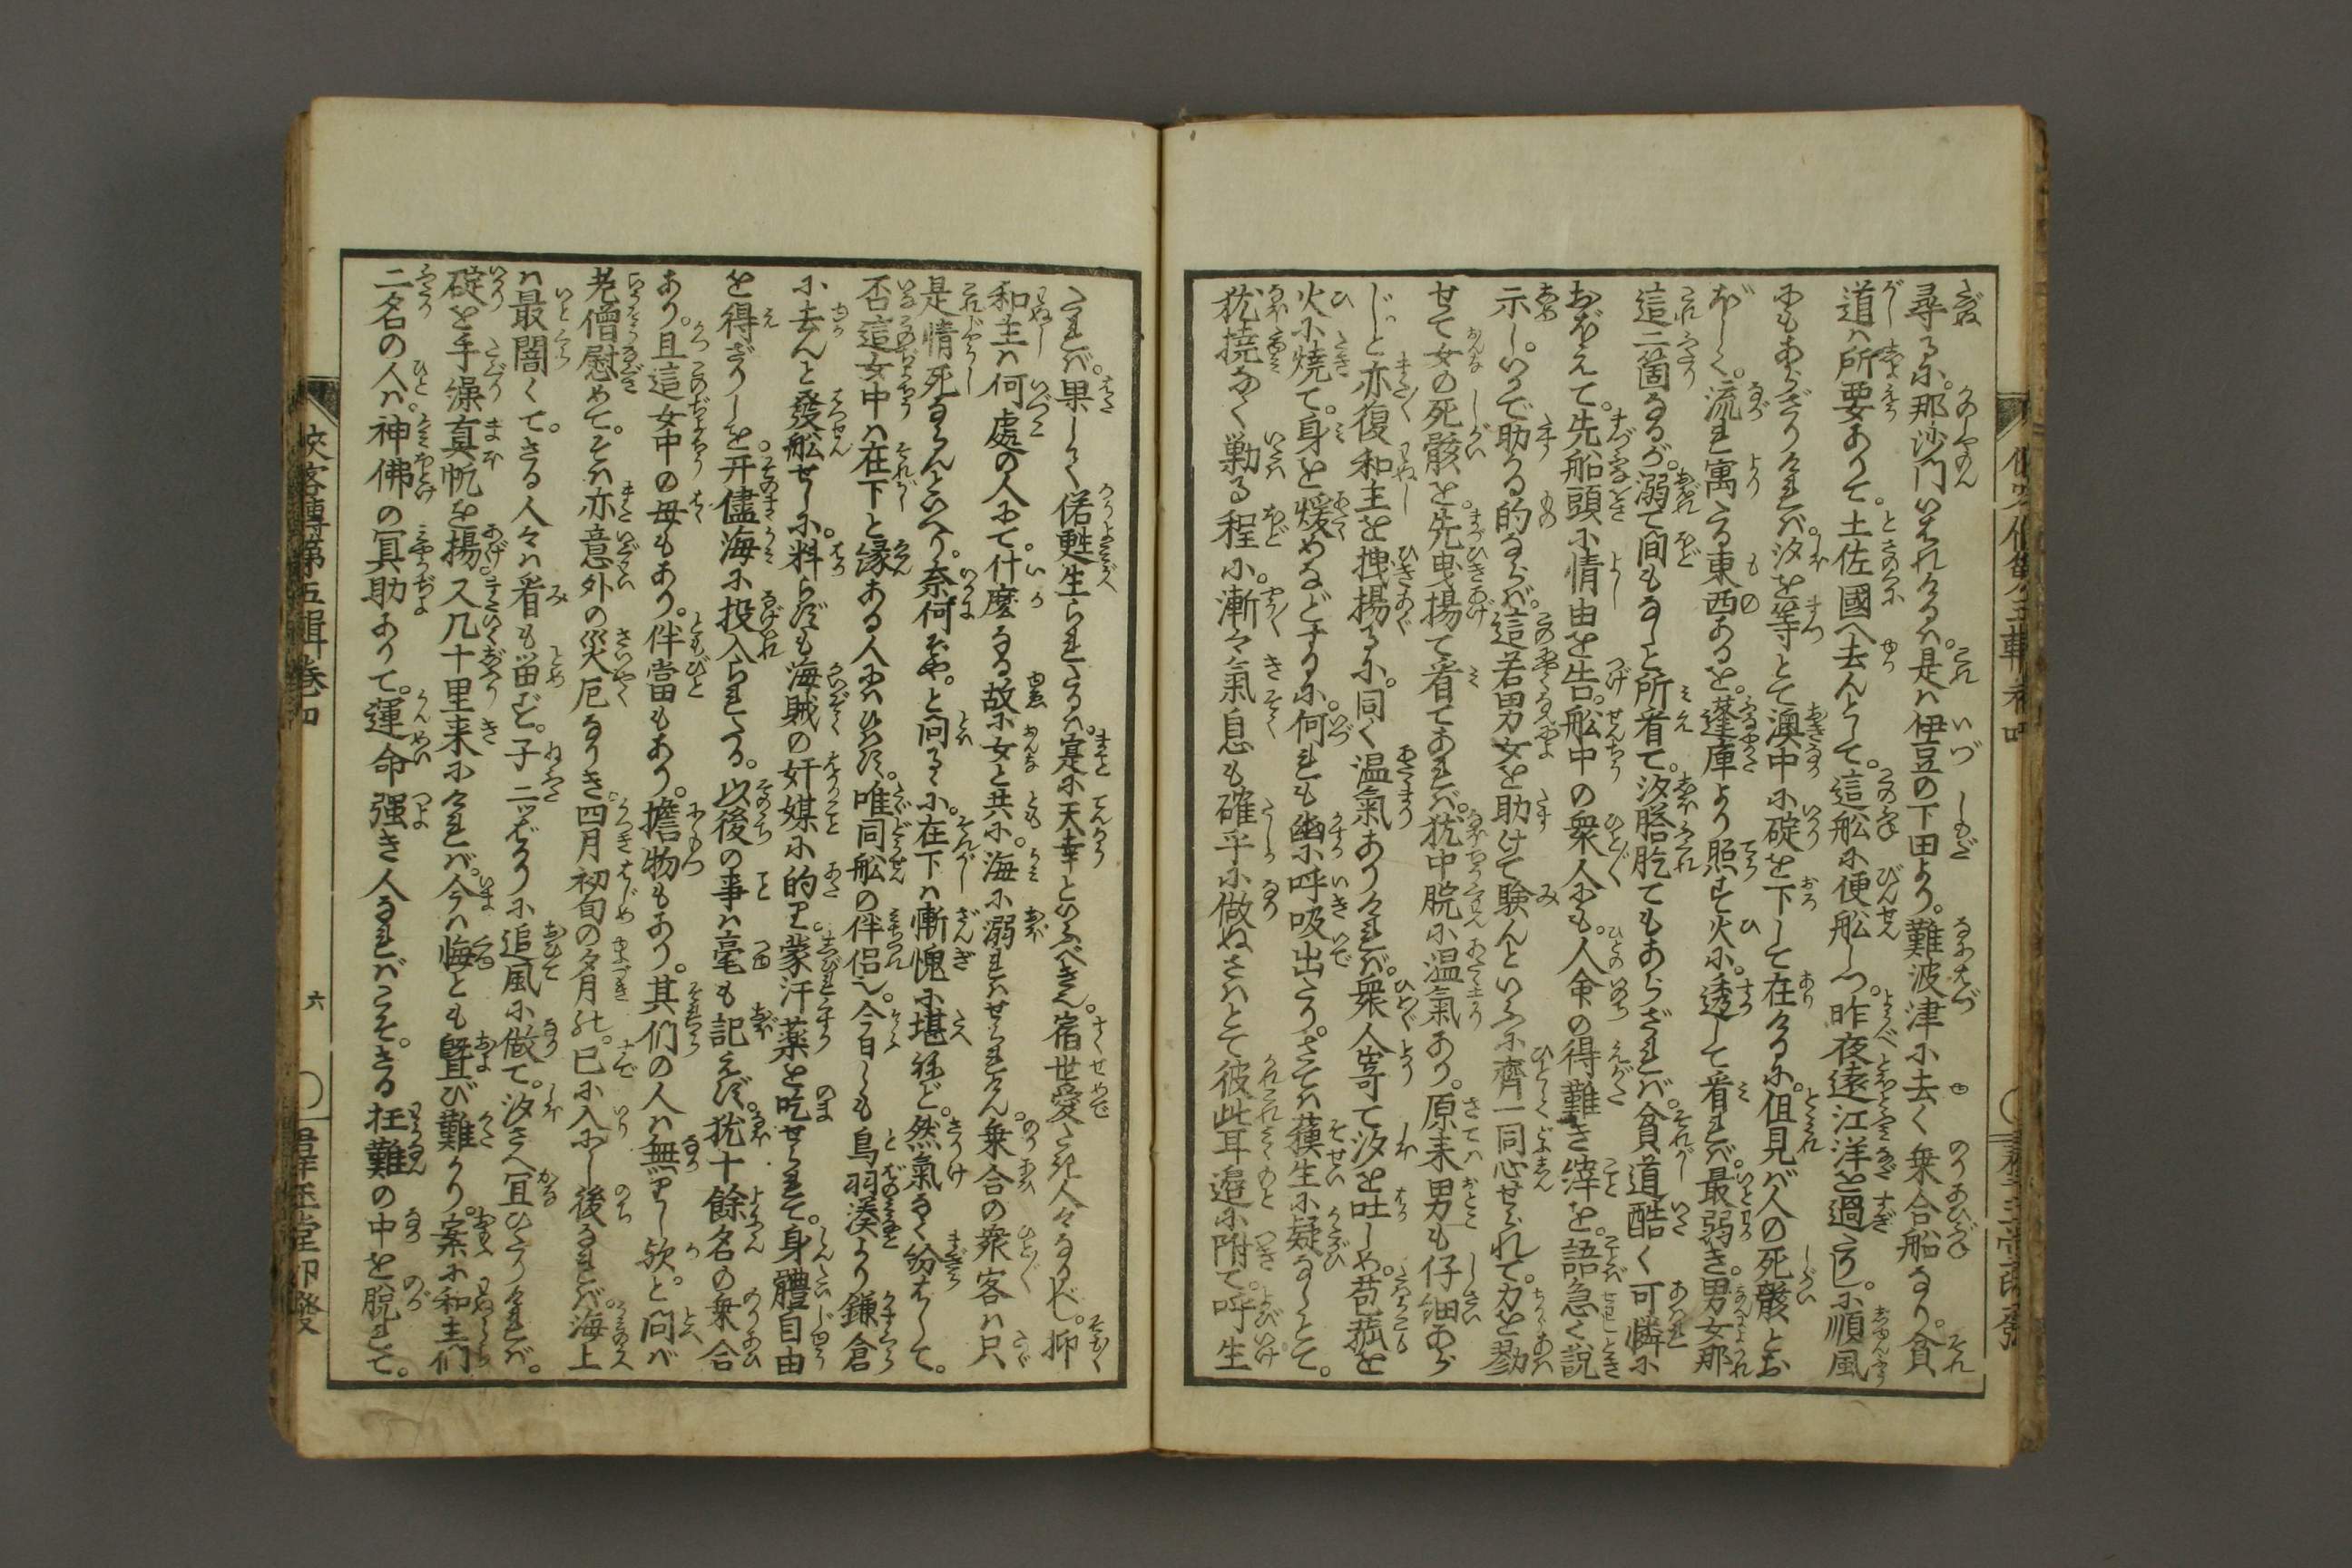 尋るに。那沙門いはれけるは。是は伊豆の下田より。難波津に去く乗合船なり。貧
道は所要ありて。土佐國へ去んとて。這舩に便舩しつ。昨夜遠江洋を過るに順風
にもあらざりければ。汐を等とて澳中に碇を下して在けるに。但見ば人の死骸とお
ぼしく。流れ寓る東西あるを。蓬庫より照す火に。透して看れば。最弱き。男女那
這二箇なるが。溺て間もなしと所看て。汐脹肥てもあらざれば。貧道酷く可憐に
おぼえて。先船頭に情由を告。舩中の衆人にも。人命の得難き縡を。語急く説
示し。いかで助かる的ならば。這若男女を助けて験んといふに齊一同心せられて。力を勠
せて女の死骸を。先曳揚て看てあれば。犹中脘に温氣あり。原来男も仔細あら
じと亦復和主を拽揚るに。同く温氣ありければ。衆人寄て汐を吐しめ。苞菰を
火に焼て。身を煖めなどするに。何れも幽に呼吸出たり。さては蘇生に疑なしとて。
犹撓なく勦る程に。漸々氣息も確乎に做ぬさはとて彼此耳邉に附て。呼生
たれば。果しく偌甦生られたるは。寔に天幸といふべき。宿世愛たき人々なりし。抑
和主は何處の人にて。什麼なる故に女と共に。海に溺れはせられけん。乗合の衆客は只
是情死ならんといへり。奈何ぞや。と問るゝに。在下は慚愧に堪ねど。然氣なく紛はして。
否這女中は在下と縁ある人にはひはず。唯同舩の伴侶也。今日しも鳥羽湊より鎌倉
に去んと發舩せしに。料らずも海賊の奸媒に的り。蒙汗薬を吃せられて。身體自由
を得ざりしを。开儘海に投入られたる。以後の事は毫も記えず。犹十餘名の乗合
あり。且這女中の母もあり。伴當もあり。擔物もあり。其们の人は無りし歟。と問ば
老僧慰めて。そは亦意外の災厄なりき。四月初旬の夕月夜。已に入にし後なれば海上
は最闇くて。さる人々は看も留ず。子二ツばかりに追風に做て。汐さへ宜ひたりければ。
碇を手繰真帆を揚ス几十里来にければ。今は悔とも曁び難かり。案に和主们
二名の人は。神佛の冥助ありて。運命强き人なればこそ。さる枉難の中を脱れて。
侠客傳第五輯巻四
六
群玉堂印發